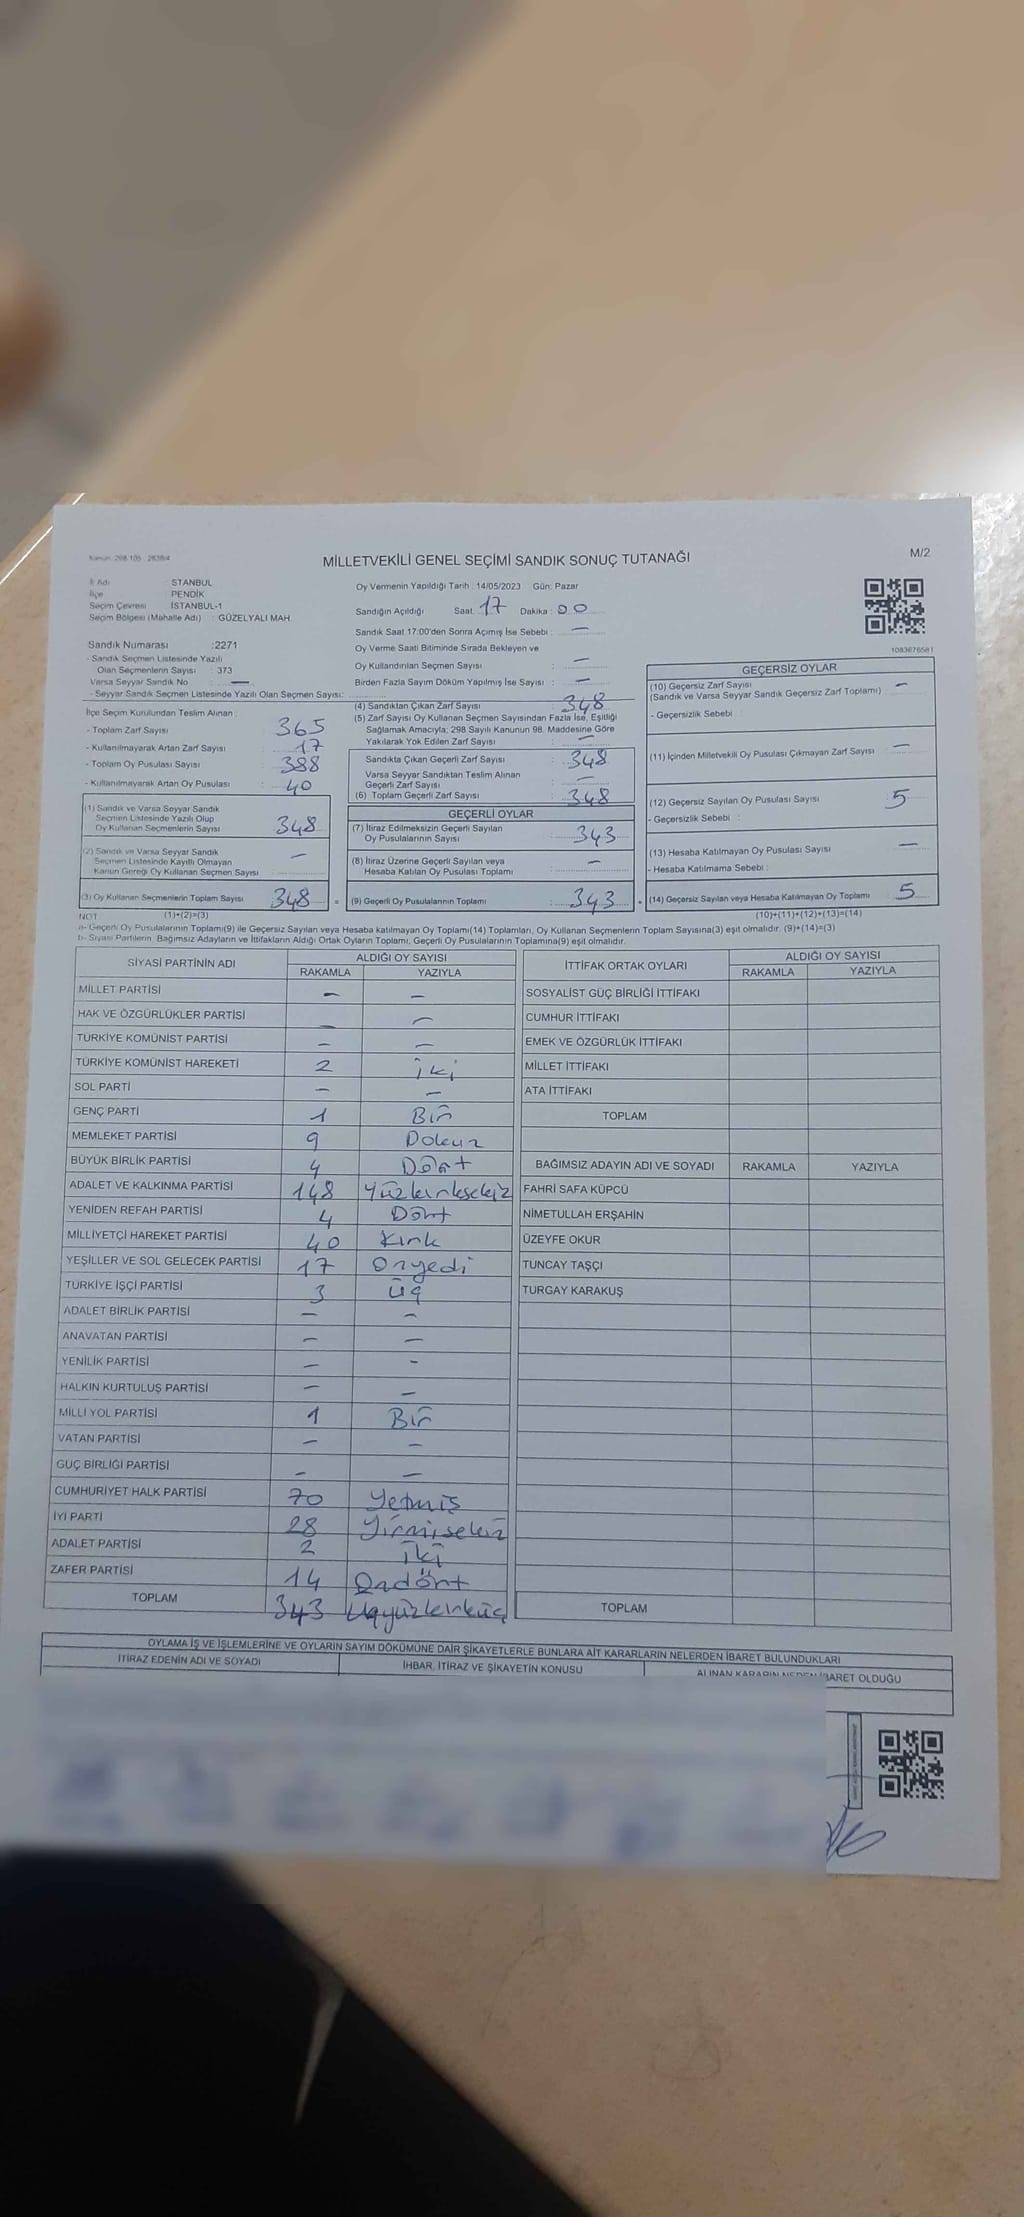 Kanun: 298,105 : 2839/4
MİLLETVEKİLİ GENEL SEÇİMİ SANDIK SONUÇ TUTANAĞI
M/2
İl Adı : İSTANBUL
İlçe : PENDİK
Seçim Çevresi : İSTANBUL-1
Seçim Bölgesi (Mahalle Adı) : GÜZELYALI MAH.
Sandık Numarası :2271
- Sandık Seçmen Listesinde Yazılı
Olan Seçmenlerin Sayısı : 373
Varsa Seyyar Sandık No : —
- Seyyar Sandık Seçmen Listesinde Yazılı Olan Seçmen Sayısı:
Oy Vermenin Yapıldığı Tarih : 14/05/2023 Gün: Pazar
Sandığın Açıldığı Saat: 17 Dakika : 00
Sandık Saat 17:00'den Sonra Açımış İse Sebebi : —
Oy Verme Saati Bitiminde Sırada Bekleyen ve
Oy Kullandırılan Seçmen Sayısı : —
Birden Fazla Sayım Döküm Yapılmış İse Sayısı : —
1083676581
İlçe Seçim Kurulundan Teslim Alınan :
- Toplam Zarf Sayısı : 365
- Kullanılmayarak Artan Zarf Sayısı : 17
- Toplam Oy Pusulası Sayısı : 388
- Kullanılmayarak Artan Oy Pusulası : 40
(1) Sandık ve Varsa Seyyar Sandık
Seçmen Listesinde Yazılı Olup
Oy Kullanan Seçmenlerin Sayısı : 348
(2) Sandık ve Varsa Seyyar Sandık
Seçmen Listesinde Kayıtlı Olmayan
Kanun Gereği Oy Kullanan Seçmen Sayısı : —
(3) Oy Kullanan Seçmenlerin Toplam Sayısı : 348 =
(4) Sandıktan Çıkan Zarf Sayısı : 348
(5) Zarf Sayısı Oy Kullanan Seçmen Sayısından Fazla İse, Eşitliği
Sağlamak Amacıyla; 298 Sayılı Kanunun 98. Maddesine Göre
Yakılarak Yok Edilen Zarf Sayısı : —
Sandıkta Çıkan Geçerli Zarf Sayısı : 348
Varsa Seyyar Sandıktan Teslim Alınan
Geçerli Zarf Sayısı : —
(6) Toplam Geçerli Zarf Sayısı : 348
GEÇERLİ OYLAR
(7) İtiraz Edilmeksizin Geçerli Sayılan
Oy Pusulalarının Sayısı : 343
(8) İtiraz Üzerine Geçerli Sayılan veya
Hesaba Katılan Oy Pusulası Toplamı : —
(9) Geçerli Oy Pusulalarının Toplamı : 343 +
GEÇERSİZ OYLAR
(10) Geçersiz Zarf Sayısı : —
(Sandık ve Varsa Seyyar Sandık Geçersiz Zarf Toplamı)
- Geçersizlik Sebebi :
(11) İçinden Milletvekili Oy Pusulası Çıkmayan Zarf Sayısı : —
(12) Geçersiz Sayılan Oy Pusulası Sayısı : 5
- Geçersizlik Sebebi :
(13) Hesaba Katılmayan Oy Pusulası Sayısı : —
- Hesaba Katılmama Sebebi :
(14) Geçersiz Sayılan veya Hesaba Katılmayan Oy Toplamı : 5
NOT : (1)+(2)=(3)
(10)+(11)+(12)+(13)=(14)
a- Geçerli Oy Pusulalarının Toplamı(9) ile Geçersiz Sayılan veya Hesaba Katılmayan Oy Toplamı(14) Toplamları, Oy Kullanan Seçmenlerin Toplam Sayısına(3) eşit olmalıdır. (9)+(14)=(3)
b- Siyasi Partilerin, Bağımsız Adayların ve İttifakların Aldığı Ortak Oyların Toplamı, Geçerli Oy Pusulalarının Toplamına(9) eşit olmalıdır.
SİYASİ PARTİNİN ADI ALDIĞI OY SAYISI
RAKAMLA YAZIYLA
MİLLET PARTİSİ — —
HAK VE ÖZGÜRLÜKLER PARTİSİ — —
TÜRKİYE KOMÜNİST PARTİSİ — —
TÜRKİYE KOMÜNİST HAREKETİ 2 iki
SOL PARTİ — —
GENÇ PARTİ 1 Bir
MEMLEKET PARTİSİ 9 Dokuz
BÜYÜK BİRLİK PARTİSİ 4 Dört
ADALET VE KALKINMA PARTİSİ 148 Yüzkırksekiz
YENİDEN REFAH PARTİSİ 4 Dört
MİLLİYETÇİ HAREKET PARTİSİ 40 Kırk
YEŞİLLER VE SOL GELECEK PARTİSİ 17 Onyedi
TÜRKİYE İŞÇİ PARTİSİ 3 Üç
ADALET BİRLİK PARTİSİ — —
ANAVATAN PARTİSİ — —
YENİLİK PARTİSİ — -
HALKIN KURTULUŞ PARTİSİ — —
MİLLİ YOL PARTİSİ 1 Bir
VATAN PARTİSİ — —
GÜÇ BİRLİĞİ PARTİSİ — —
CUMHURİYET HALK PARTİSİ 70 Yetmiş
İYİ PARTİ 28 Yirmisekiz
ADALET PARTİSİ 2 İki
ZAFER PARTİSİ 14 Ondört
TOPLAM 343 Üçyüzkırküç
İTTİFAK ORTAK OYLARI ALDIĞI OY SAYISI
RAKAMLA YAZIYLA
SOSYALİST GÜÇ BİRLİĞİ İTTİFAKI
CUMHUR İTTİFAKI
EMEK VE ÖZGÜRLÜK İTTİFAKI
MİLLET İTTİFAKI
ATA İTTİFAKI
TOPLAM
BAĞIMSIZ ADAYIN ADI VE SOYADI RAKAMLA YAZIYLA
FAHRİ SAFA KÜPCÜ
NİMETULLAH ERŞAHİN
ÜZEYFE OKUR
TUNCAY TAŞÇI
TURGAY KARAKUŞ
TOPLAM
OYLAMA İŞ VE İŞLEMLERİNE VE OYLARIN SAYIM DÖKÜMÜNE DAİR ŞİKAYETLERLE BUNLARA AİT KARARLARIN NELERDEN İBARET BULUNDUKLARI
İTİRAZ EDENİN ADI VE SOYADI
İHBAR, İTİRAZ VE ŞİKAYETİN KONUSU
ALINAN KARARIN NEDEN İBARET OLDUĞU